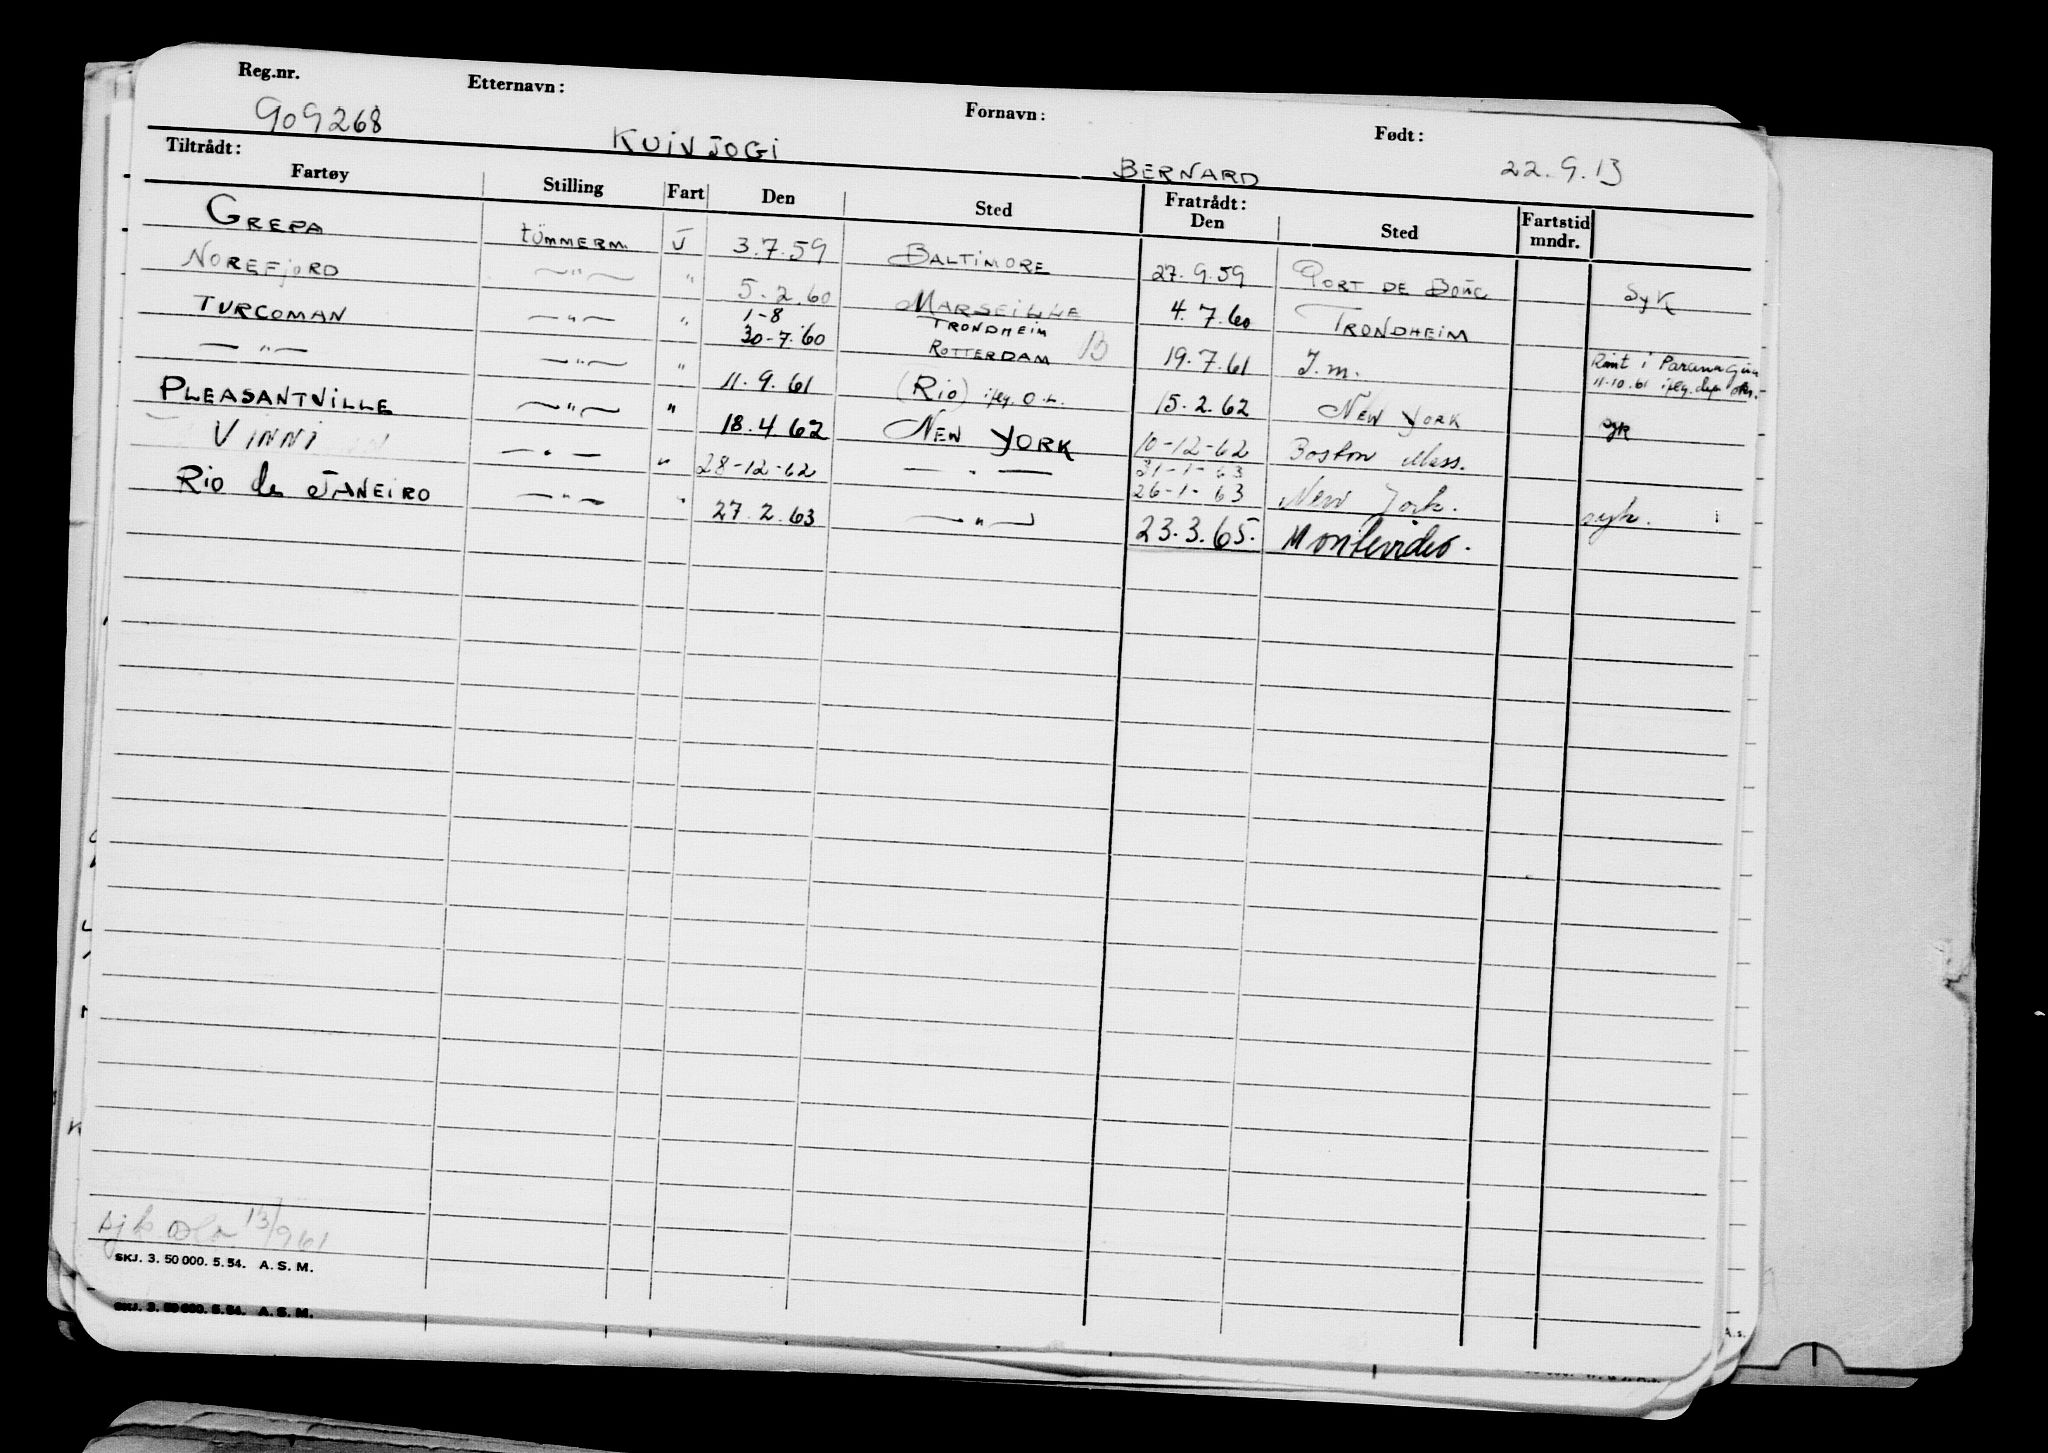 Reg.nr. Etternavn: Fornavn: Født:
909268 KUIVJOGI BERNARD 22.9.13
Tiltrådt: Fratrådt:
Fartøy Stilling Fart Den Sted Den Sted Fartstid mndr.
GREPA tömmerm. U 3.7.59 BALTIMORE 27.9.59 PORT DE BOUC Syk
NOREFJORD —"— " 5.2.60 MARSEILLE 4.7.60 TRONDHEIM
TURCOMAN —"— " 1-8 30-7.60 TRONDHEIM ROTTERDAM 19.7.61 J.m. i Paranagua
—"— —"— " 11.9.61 (Rio) 15.2.62 NEW YORK syk 11.10.61
PLEASANTVILLE —"— " 18.4.62 NEW YORK 10-12-62 Boston Mass.
VINNI —"— " 28-12-62 —"— 31-1-63 26-1-63 New York. syk.
Rio de JANEIRO —"— " 27.2.63 —"— 23.3.65. Montevideo.
13/9 61
SKJ. 3. 50 000. 5. 54. A. S. M.
SKJ. 3. 50 000. 5. 54. A. S. M.